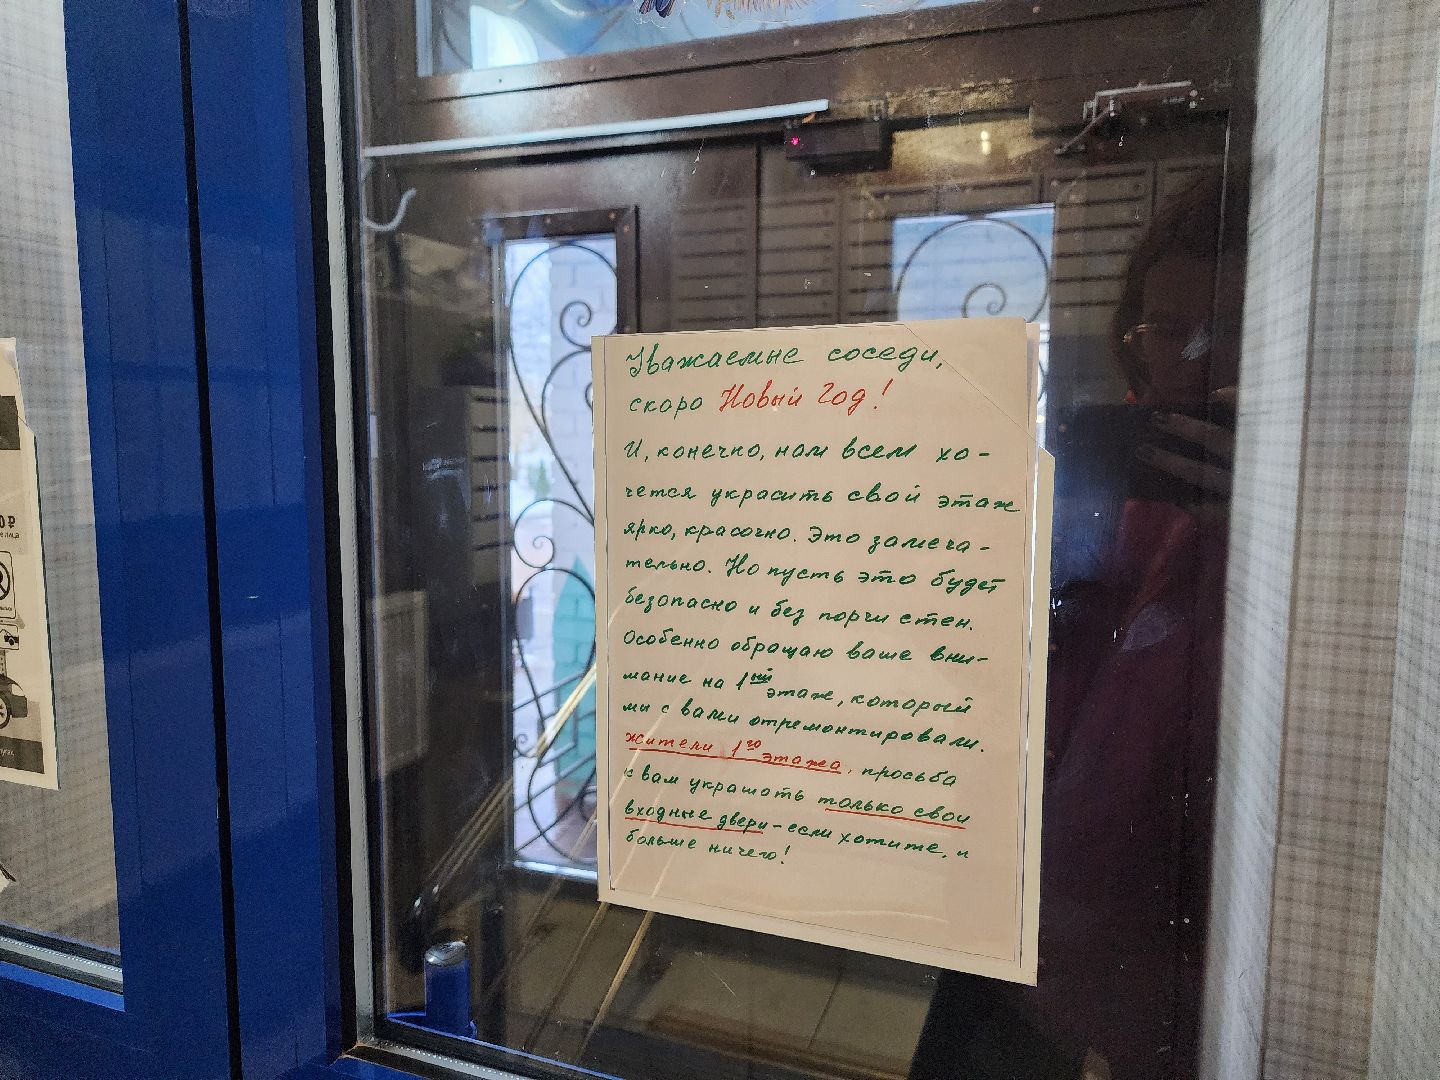 Уважаемые соседи,
скоро Новый Год!
И, конечно, нам всем хо-
чется украсить свой этаж
ярко, красочно. Это замеча-
тельно. Но пусть это будет
безопасно и без порчи стен.
Особенно обращаю ваше вни-
мание на 1ый этаж, который
мы с вами отремонтировали.
Жители 1го этажа, просьба
к вам украшать только свои
входные двери - если хотите, и
больше ничего!
0 ₽